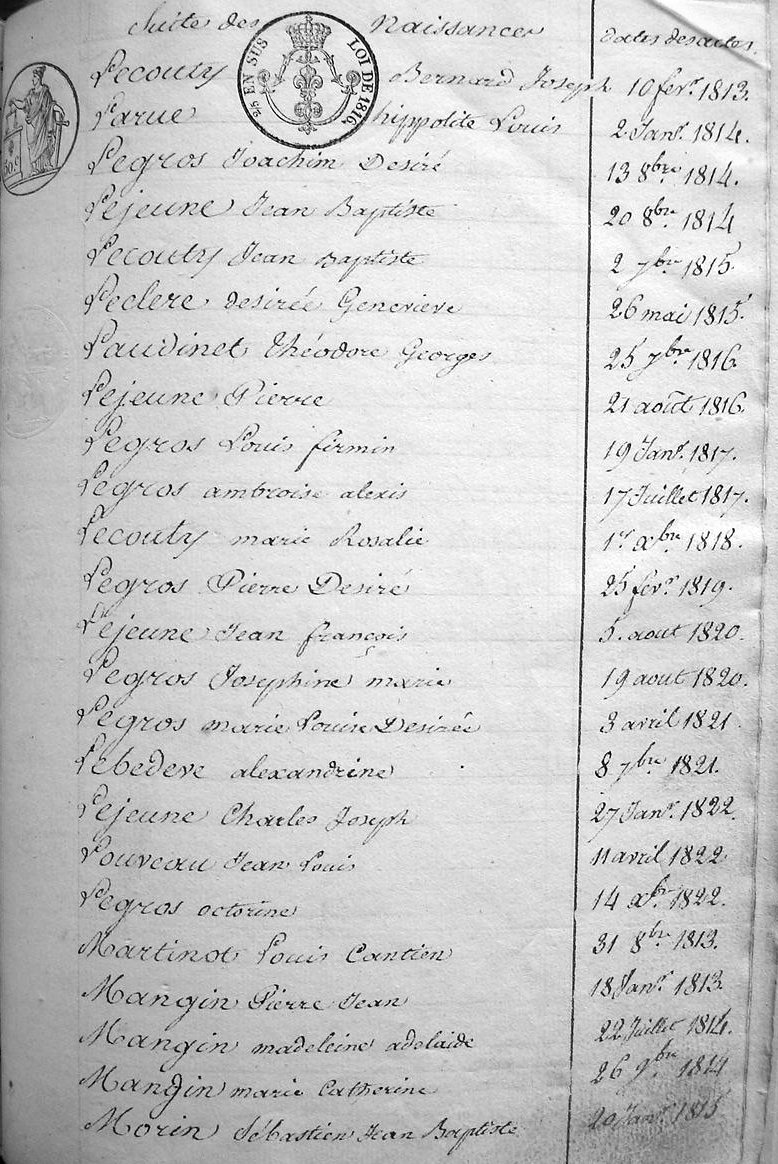 Suite des Naissances Dates des actes.
2/5 EN SUS LOI DE 1816
Lecouty Bernard Joseph 10 fevr. 1813.
Larue hippolite Louis 2 Janr. 1814.
Legros Joachim Desiré 13 8bre 1814.
Lejeune Jean Baptiste 20 8bre 1814
Lecouty Jean Baptiste 2 7bre 1815
Leclere desirée Genevieve 26 mai 1815.
Laudinet Théodore Georges 25 7bre 1816
Lejeune Pierre 21 août 1816.
Legros Louis firmin 19 Janr. 1817.
Legros ambroise alexis 17 Juillet 1817.
Lecouty marie Rosalie 1er xbre 1818.
Legros Pierre Desiré 25 fevr. 1819.
Lejeune Jean françois 5. aout 1820.
Legros Josephine marie 19 aout 1820.
Legros marie Louise Desirée 3 avril 1821.
Lebedeve alexandrine 8 7bre 1821.
Lejeune Charles Joseph 27 Janr. 1822.
Louveau Jean Louis 11 avril 1822
Legros octorine 14 xbre 1822.
Martinot Louis Cantien 31 8bre 1813.
Mangin Pierre Jean 18 Janr. 1813.
Mangin madeleine adelaide 22 Juillet 1814.
Mangin marie Catherine 26 9bre 1814
Morin Sébastien Jean Baptiste 20 Janr. 1815